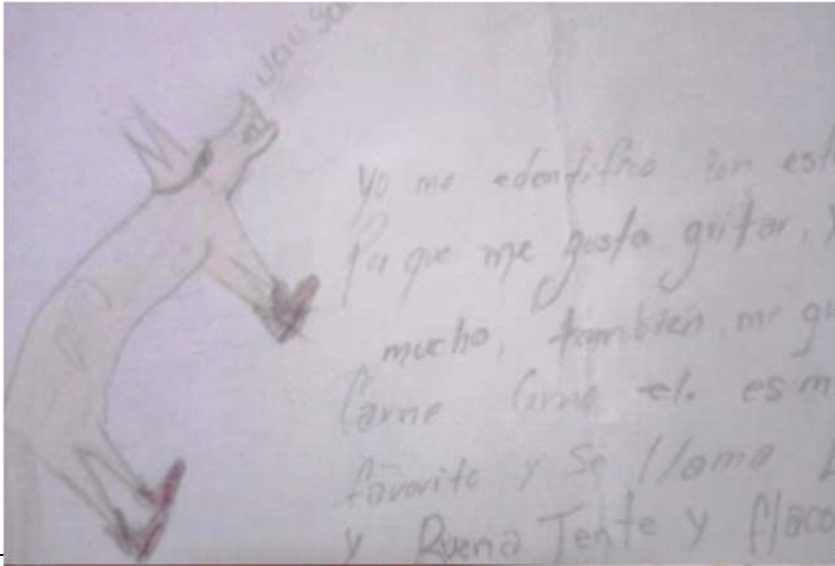 guau gua
Yo me edentifico con est
Por que me gusta gritar, y
mucho, tambien me gu
Carne Como el. es m
favorito y Se llama
y Buena Jente y flaco